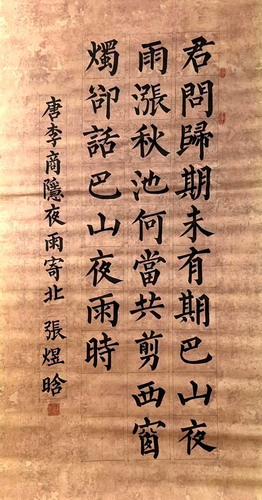 君問歸期未有期巴山夜
雨漲秋池何當共剪西窗
燭卻話巴山夜雨時
唐李商隱夜雨寄北 張煜晗